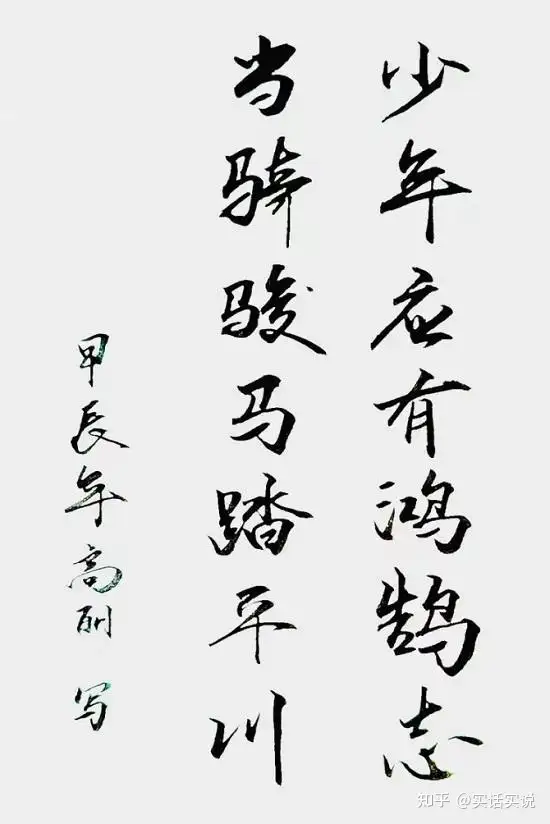 少年应有鸿鹄志
当骑骏马踏平川
甲辰年高 写
知乎 @实话实说